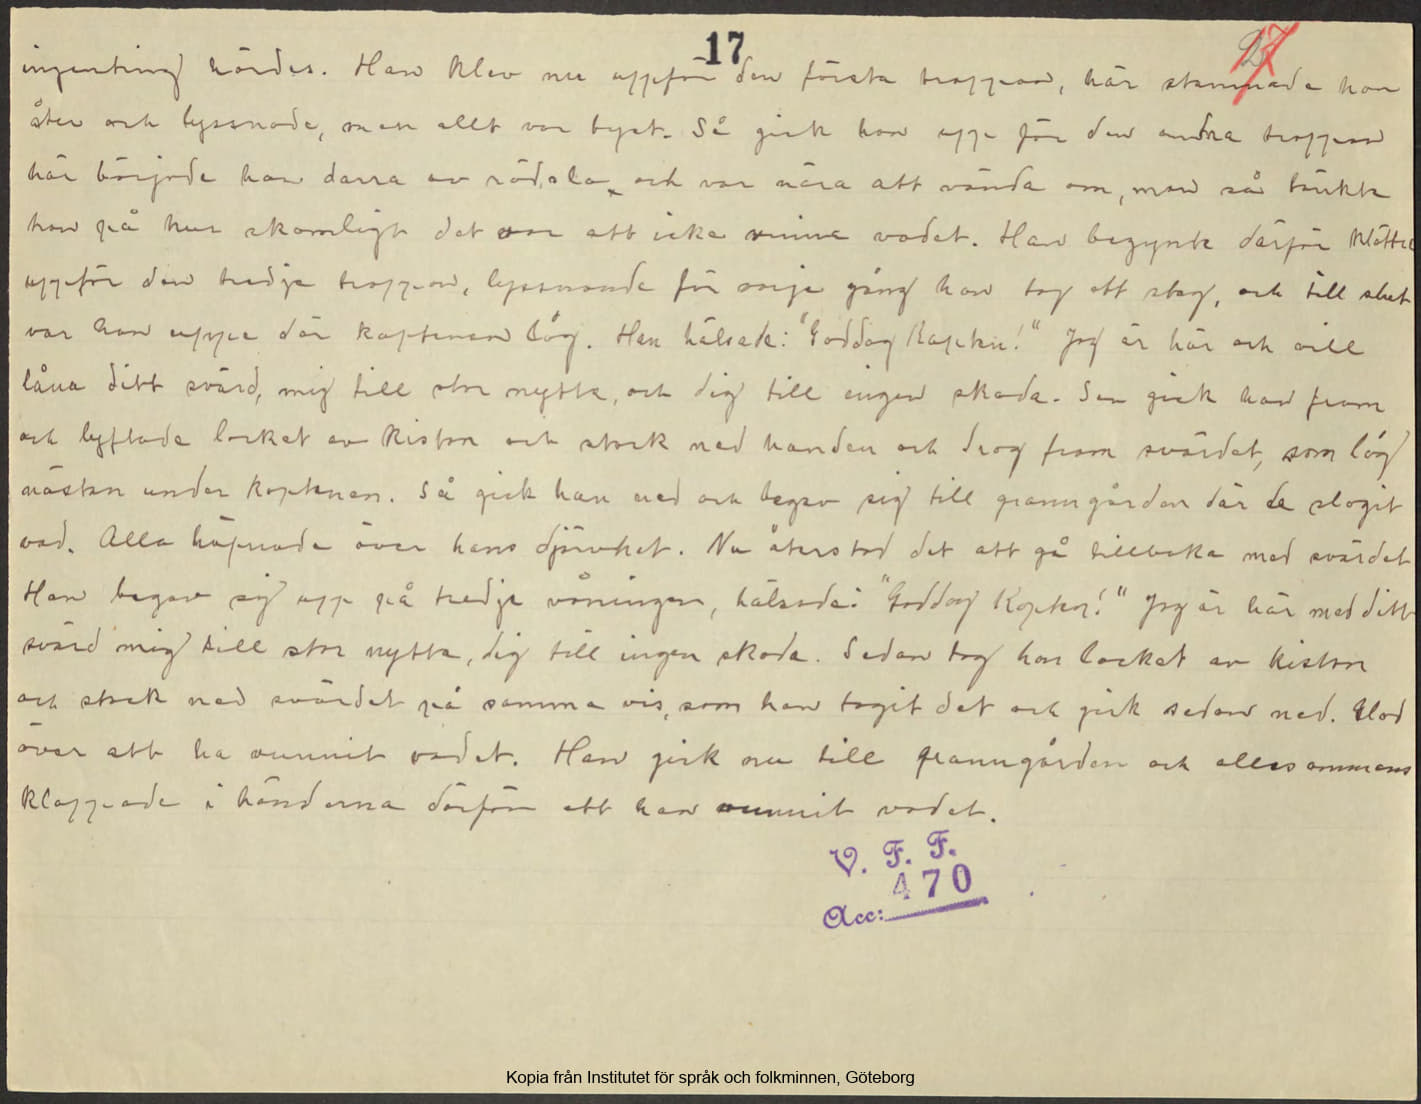 17
ingenting hördes. Han klev nu uppför den första trappan, här stannade han
åter och lyssnade, men allt var tyst. Så gick han upp för den andra trappan
här började han darra av rädsla och var nära att vända om, men så tänkte
han på hur skamligt det var att icke vinna vadet. Han begynte därför klättra
uppför den tredje trappan, lyssnande för varje gång han tog ett steg, och till slut
var han uppe där kaptenen låg. Han hälsade: "Goddag Kapten!" Jag är här och vill
låna ditt svärd, mig till stor nytta, och dig till ingen skada. Sen gick han fram
och lyftade locket av kistan och stack ned handen och drog fram svärdet, som låg
nästan under kaptenen. Så gick han ned och begav sig till granngården där de slogit
vad. Alla häpnade över hans djärvhet. Nu återstod det att gå tillbaka med svärdet
Han begav sig upp på tredje våningen, hälsade: "Goddag Kapten!" Jag är här med ditt
svärd mig till stor nytta, dig till ingen skada. Sedan tog han locket av kistan
och stack ned svärdet på samma vis, som han tagit det och gick sedan ned. Glad
över att ha vunnit vadet. Han gick nu till granngården och allesammans
klappade i händerna därför att han vunnit vadet.
V. F. F.
470
Acc:
Kopia från Institutet för språk och folkminnen, Göteborg